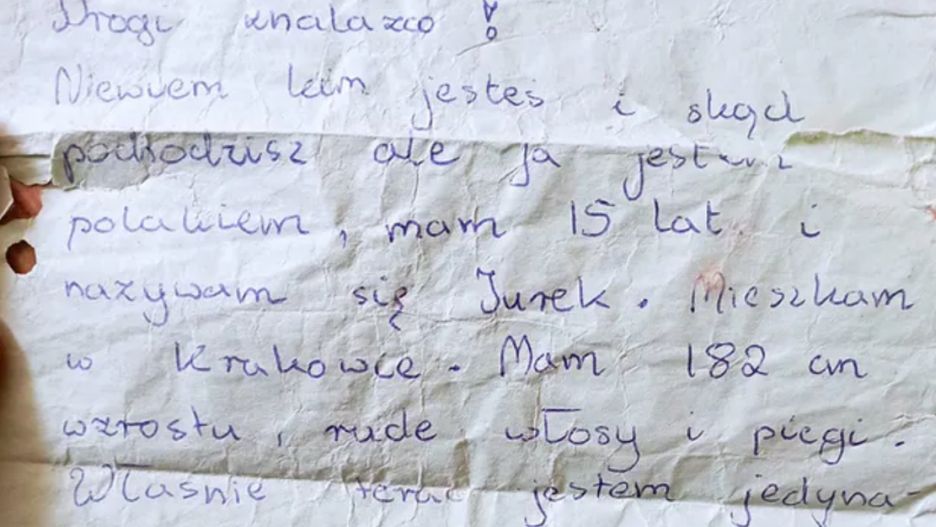 Drogi znalazco!
Niewiem kim jesteś i skąd
pochodzisz ale ja jestem
polakiem, mam 15 lat i
nazywam się Jurek. Mieszkam
w Krakowie. Mam 182 cm
wzrostu, rude włosy i piegi.
Właśnie teraz jestem jedyna-